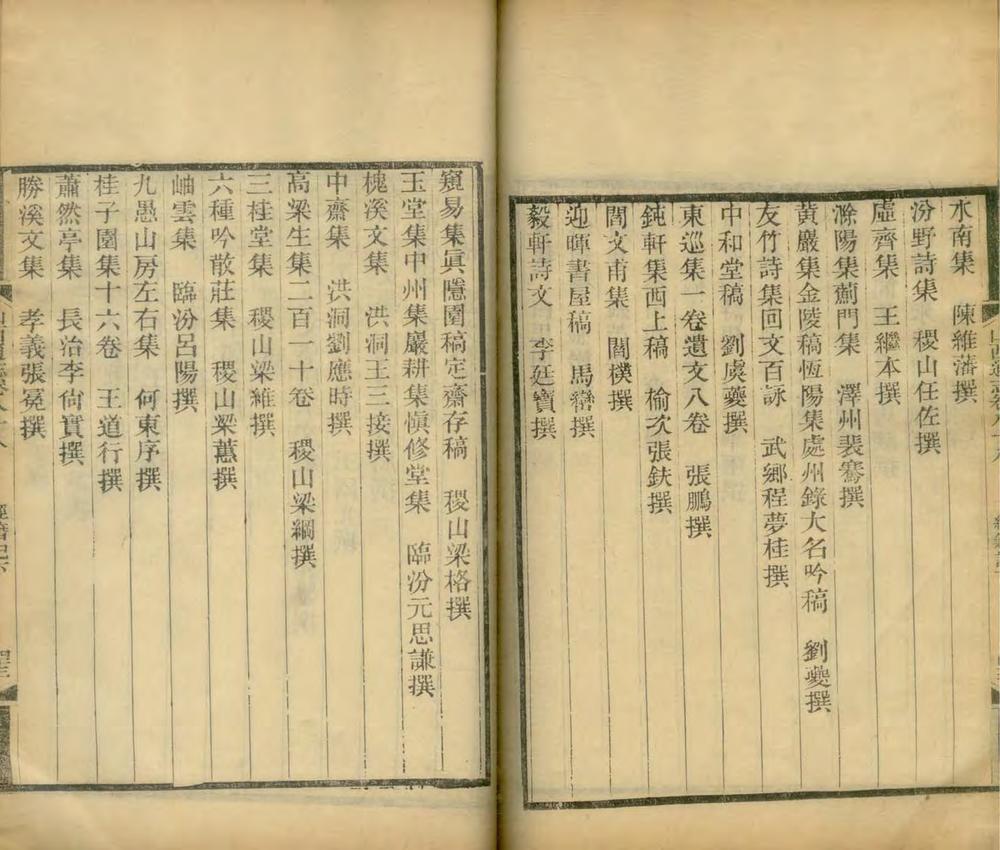 水南集　陳維藩撰
汾野詩集　稷山任佐撰
虛齊集　王繼本撰
滁陽集薊門集　澤州裴騫撰
黃巖集金陵稿恆陽集處州錄大名吟稿　劉夔撰
友竹詩集回文百詠　武鄉程夢桂撰
中和堂稿　劉虞夔撰
東巡集一卷遺文八卷　張鵬撰
鈍軒集西上稿　榆次張鈇撰
閻文甫集　閻樸撰
迎暉書屋稿　馬巒撰
毅軒詩文　李廷寶撰
窺易集眞隱園稿定齋存稿　稷山梁格撰
玉堂集中州集嚴耕集愼修堂集　臨汾元思謙撰
槐溪文集　洪洞王三接撰
中齋集　洪洞劉應時撰
高梁生集二百一十卷　稷山梁綱撰
三桂堂集　稷山梁維撰
六種吟散莊集　稷山梁蕙撰
岫雲集　臨汾呂陽撰
九愚山房左右集　何東序撰
桂子園集十六卷　王道行撰
蕭然亭集　長治李尙實撰
勝溪文集　孝義張冕撰